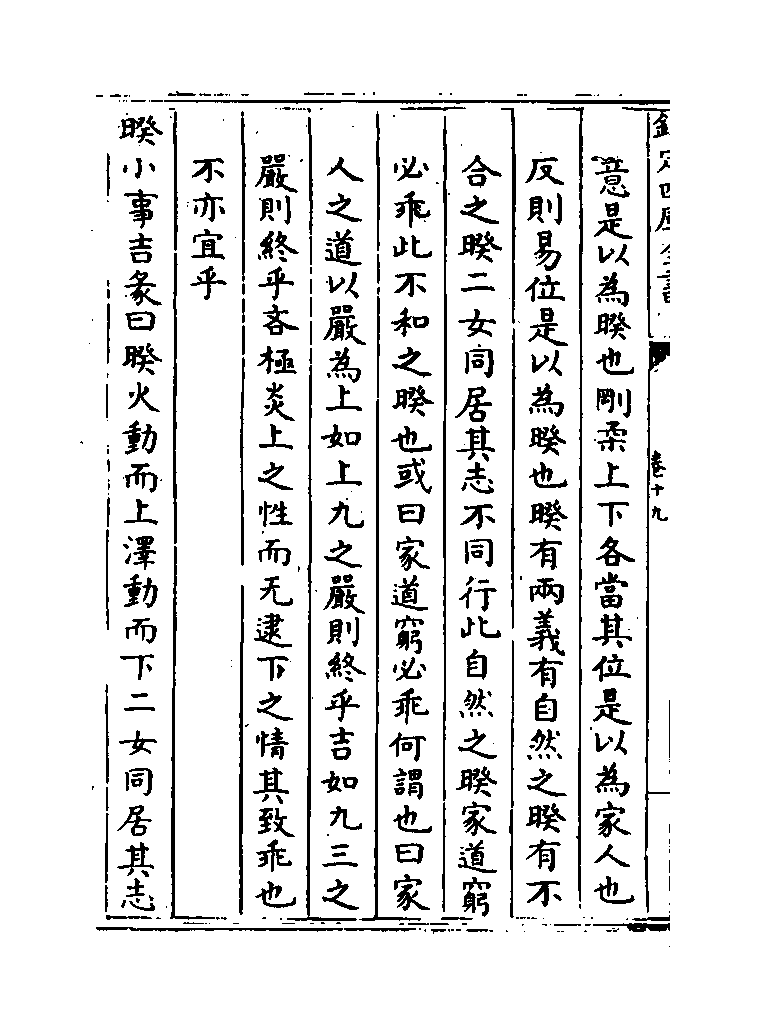 欽定四庫全書
卷十九
意是以為睽也剛柔上下各當其位是以為家人也
反則易位是以為睽也睽有兩義有自然之睽有不
合之睽二女同居其志不同行此自然之睽家道窮
必乖此不和之睽也或曰家道窮必乖何謂也曰家
人之道以嚴為上如上九之嚴則終乎吉如九三之
嚴則終乎吝極炎上之性而无逮下之情其致乖也
不亦宜乎
睽小事吉彖曰睽火動而上澤動而下二女同居其志